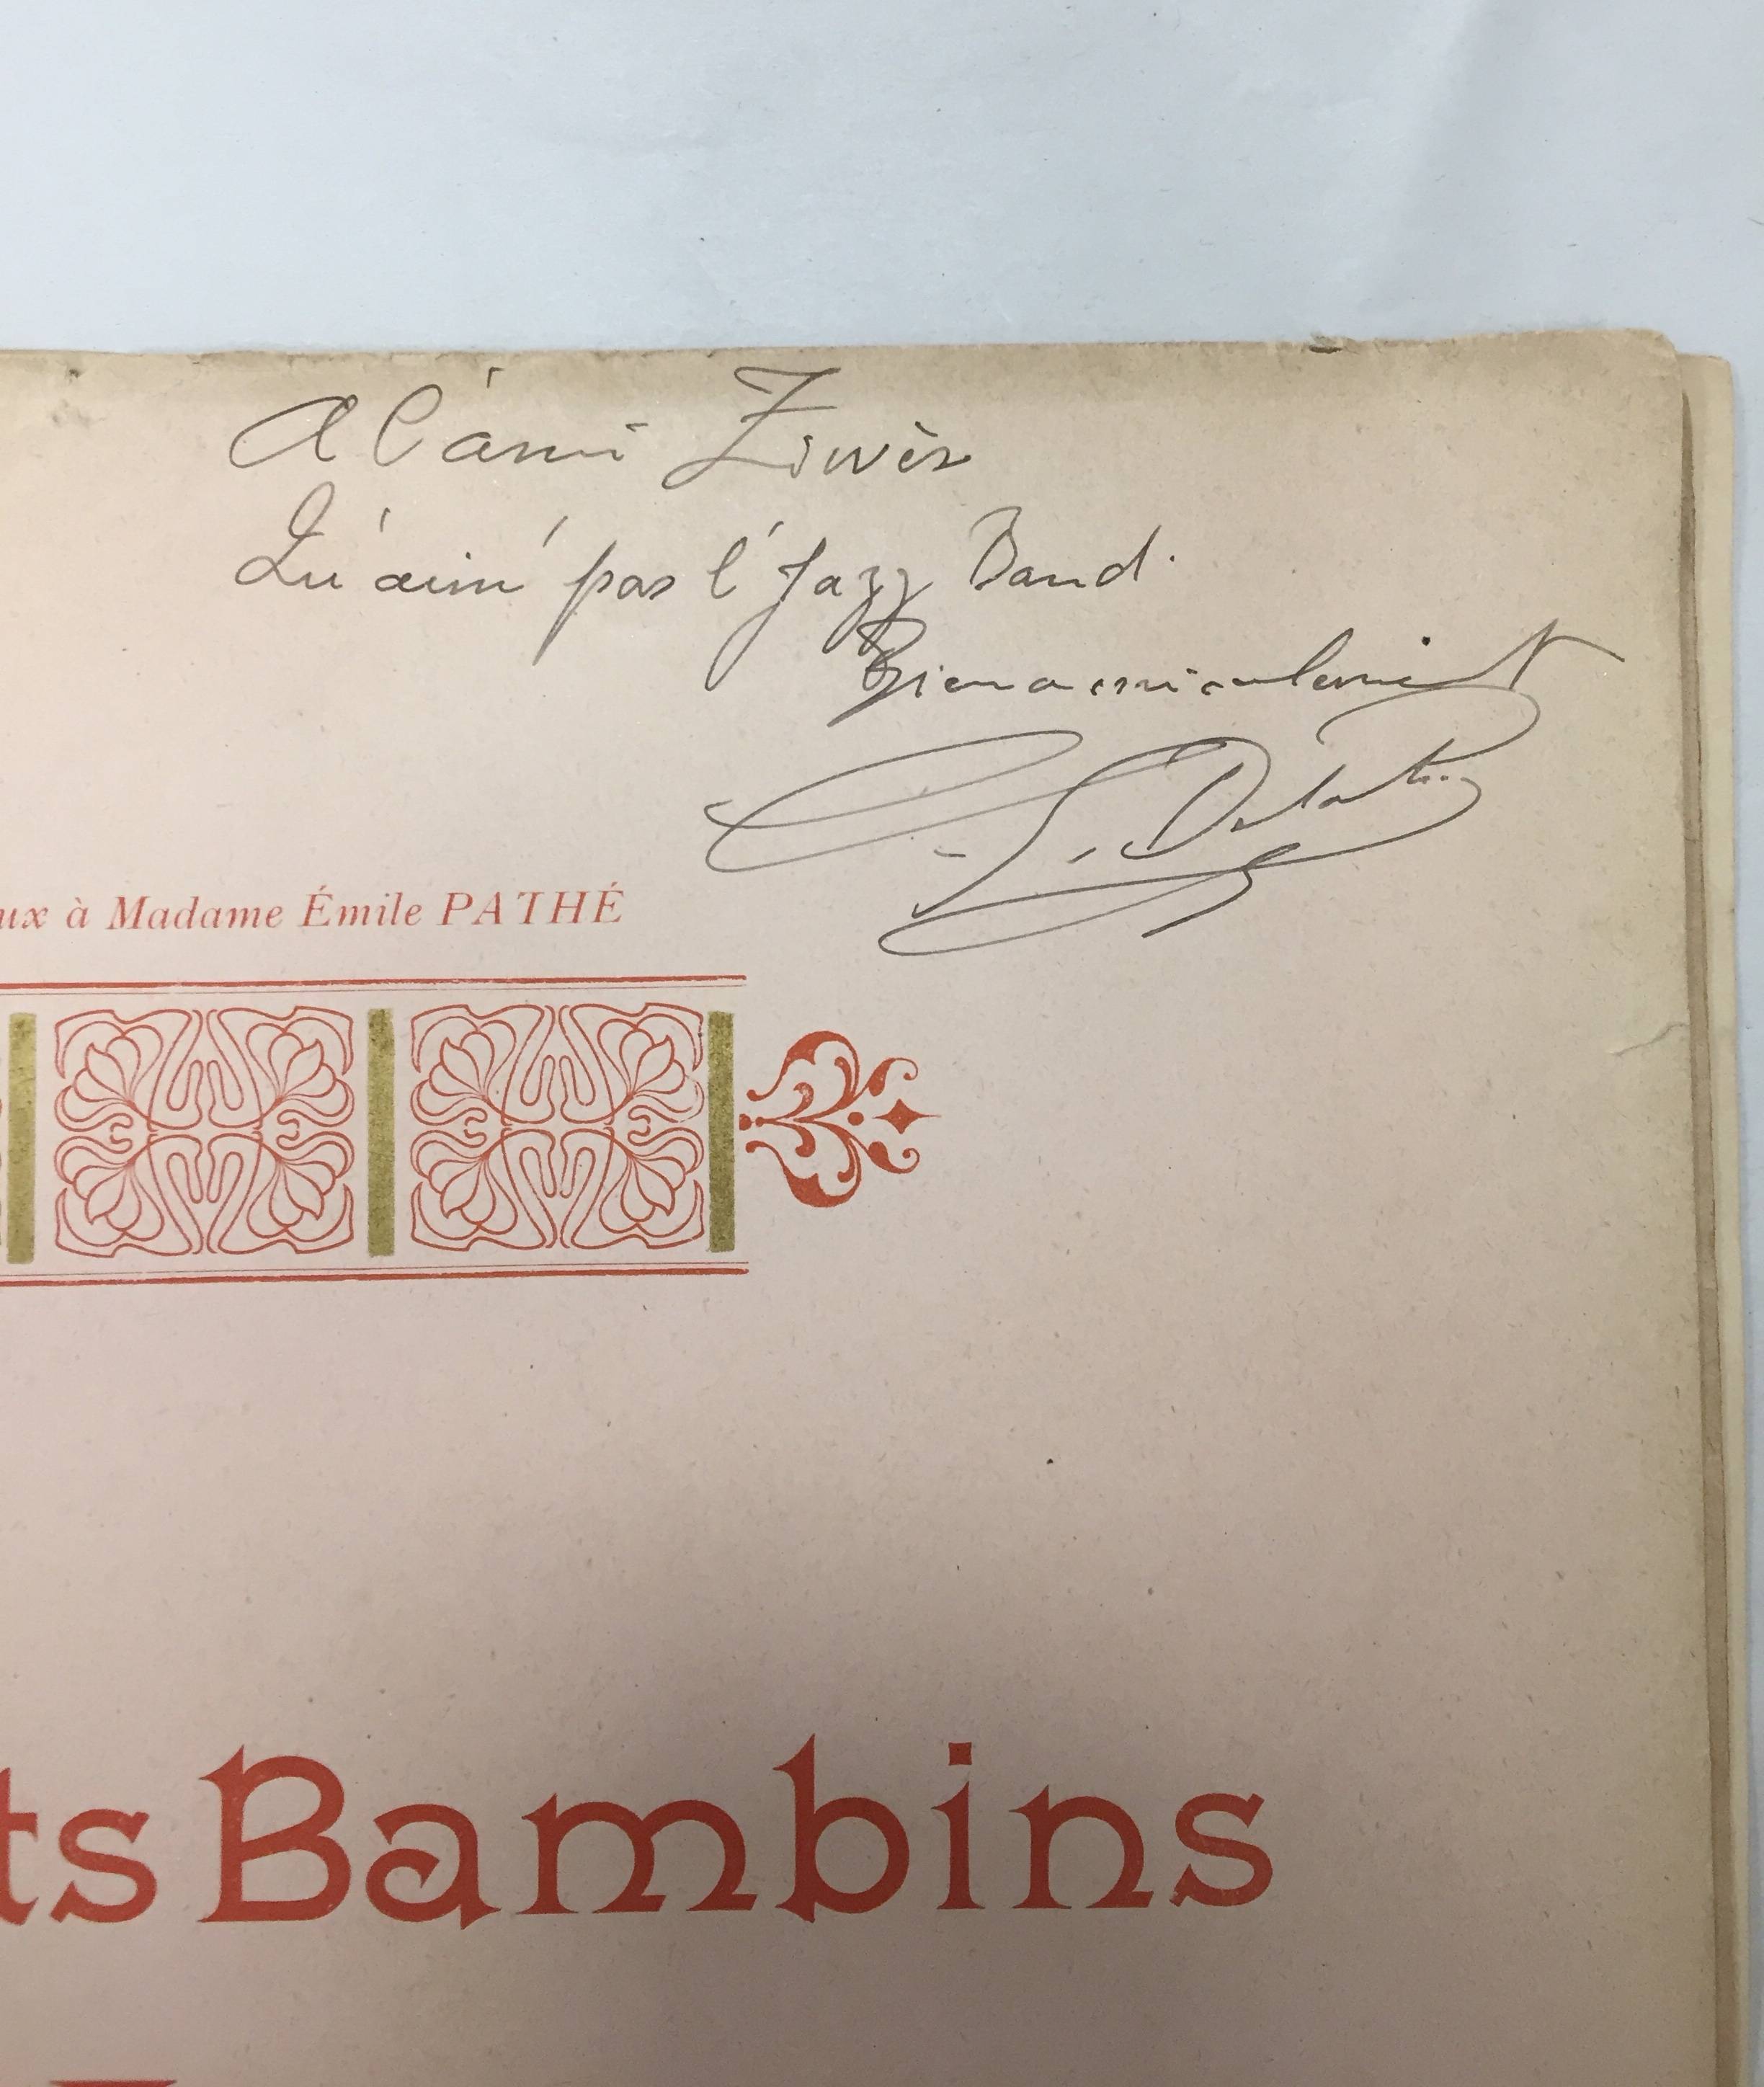 A l'ami Ziwès
Qu'aim' pas l' Jazz Band.
Bien amicalement
ux à Madame Émile PATHÉ
ts Bambins